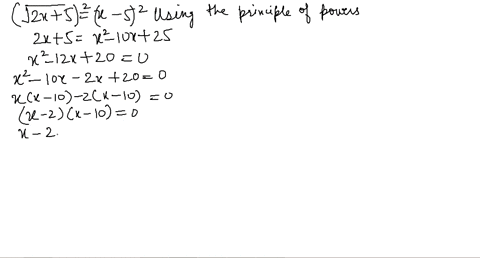 (√2x+5)²=(x-5)² Using the principle of powers
2x+5= x²-10x+25
x²-12x+20=0
x²-10x-2x+20=0
x(x-10)-2(x-10)=0
(x-2)(x-10)=0
x-2